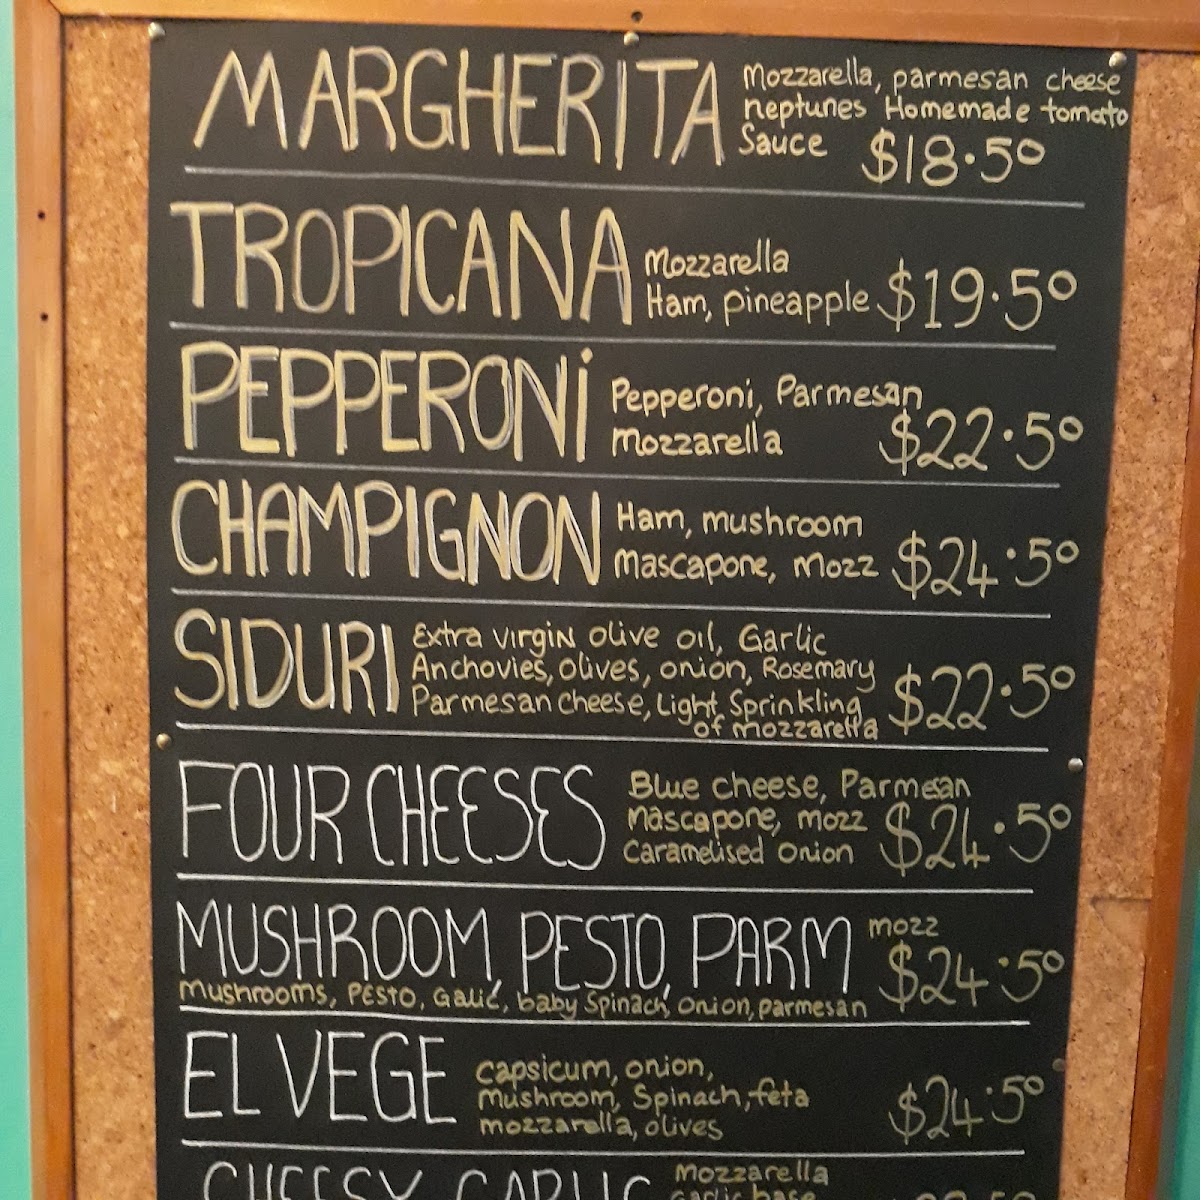 MARGHERITA Mozzarella, parmesan cheese
neptunes Homemade tomato
Sauce $18.50
TROPICANA Mozzarella
Ham, pineapple $19.50
PEPPERONi Pepperoni, Parmesan
mozzarella $22.50
CHAMPIGNON Ham, mushroom
mascapone, mozz $24.50
SIDURI Extra virgin olive oil, Garlic
Anchovies, olives, onion, Rosemary
Parmesan cheese, Light Sprinkling
of mozzarella $22.50
FOUR CHEESES Blue cheese, Parmesan
mascapone, mozz $24.50
caramelised onion
MUSHROOM, PESTO, PARM mozz
$24.50
mushrooms, PESTO, Galic, baby Spinach, onion, parmesan
EL VEGE capsicum, onion,
mushroom, Spinach, feta
mozzarella, olives $24.50
CHEESY GARLIC mozzarella
garlic base